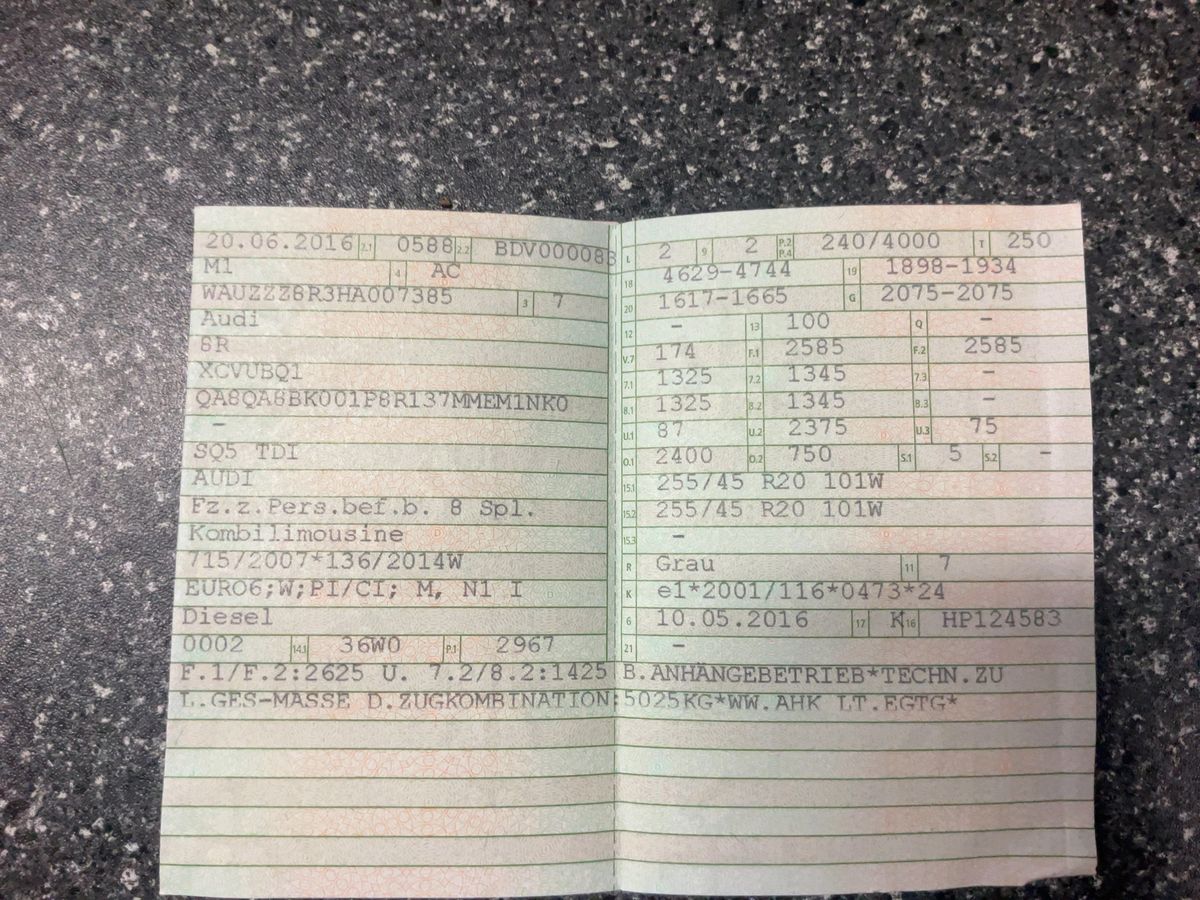 20.06.2016 2.1 0588 2.2 BDV00008
M1 4 AC
WAUZZZ8R3HA007385 3 7
Audi
8R
XCVUBQ1
QA8QA8BK001P8R137MMEM1NK0
-
SQ5 TDI
AUDI
Fz.z.Pers.bef.b. 8 Spl.
Kombilimousine
715/2007*136/2014W
EURO6;W;PI/CI; M, N1 I
Diesel
0002 14.1 36W0 P.1 2967
L 2 9 2 P.2 P.4 240/4000 T 250
18 4629-4744 19 1898-1934
20 1617-1665 G 2075-2075
12 - 13 100 Q -
V.7 174 F.1 2585 F.2 2585
7.1 1325 7.2 1345 7.3 -
8.1 1325 8.2 1345 8.3 -
U.1 87 U.2 2375 U.3 75
O.1 2400 O.2 750 S.1 5 S.2 -
15.1 255/45 R20 101W
15.2 255/45 R20 101W
15.3 -
R Grau 11 7
K e1*2001/116*0473*24
6 10.05.2016 17 K 16 HP124583
21 -
F.1/F.2:2625 U. 7.2/8.2:1425 B.ANHÄNGEBETRIEB*TECHN.ZU
L.GES-MASSE D.ZUGKOMBINATION:5025KG*WW.AHK LT.EGTG*